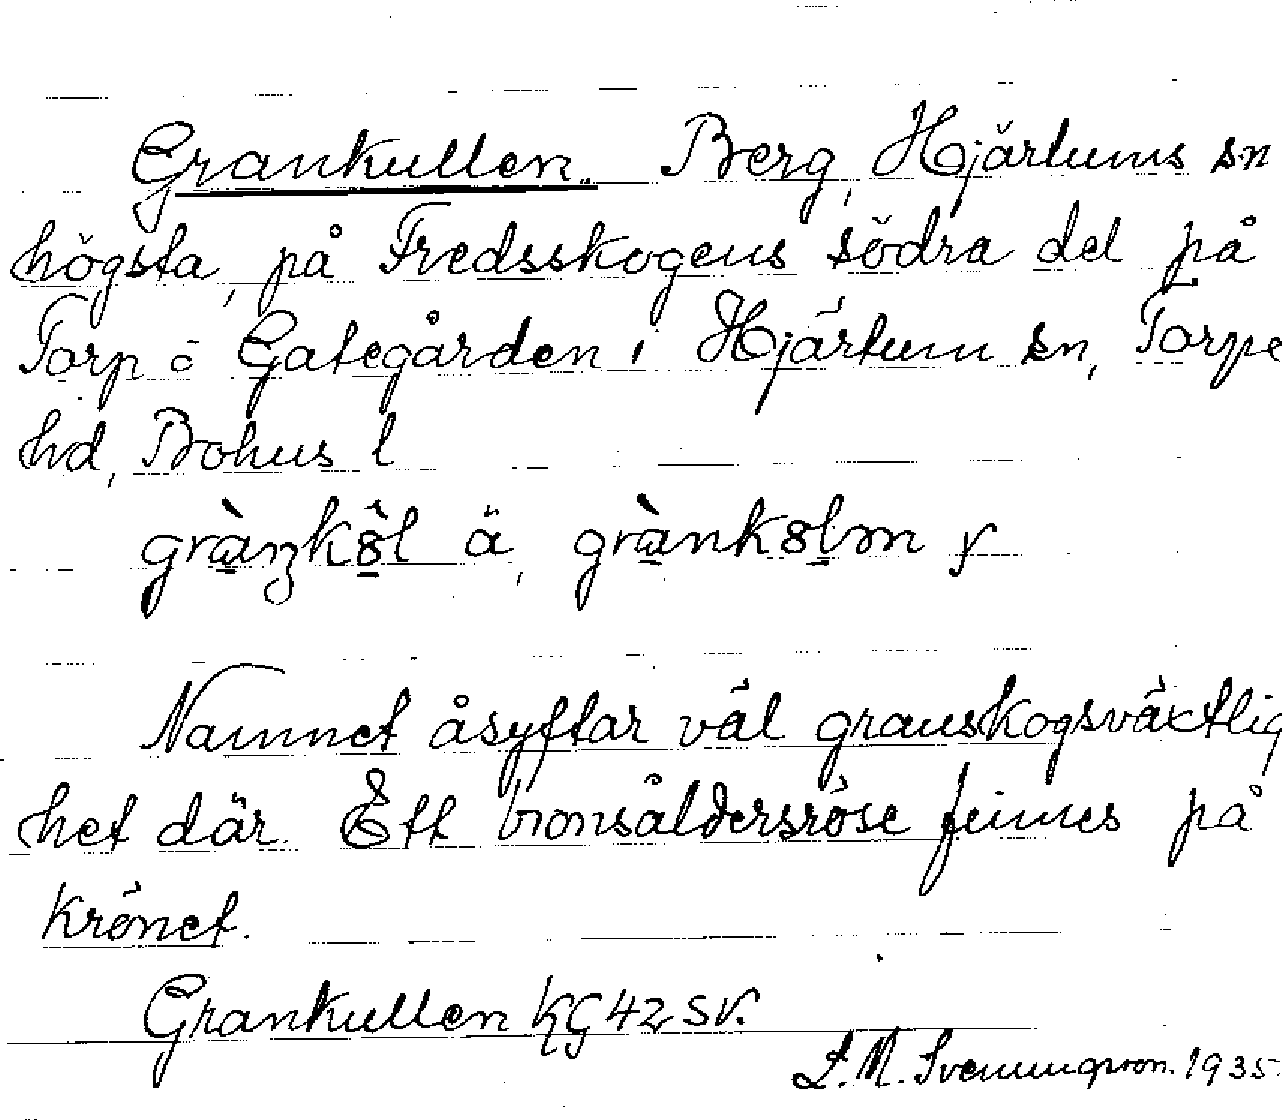 Grankullen. Berg, Hjärtums sn
högsta, på Fredsskogens södra del på
Torp o Gategården i Hjärtum sn, Torpe
hd, Bohus l
ä, y
Namnet åsyftar väl granskogsväxtlig
het där. Ett bronsåldersröse finnes på
krönet.
Grankullen KG 42 SV.
L. M. Svenungsson. 1935